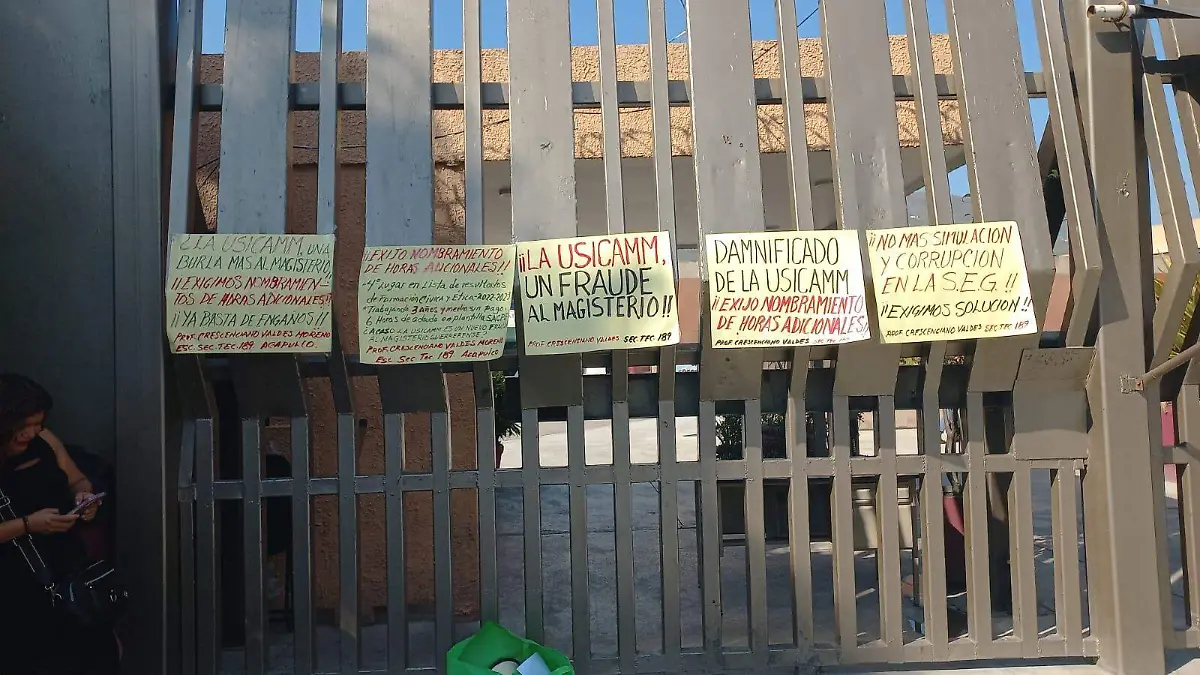 ¿LA USICAMM, UNA
BURLA MAS AL MAGISTERIO,
¡¡EXIGIMOS NOMBRAMIEN-
TOS DE HORAS ADICIONALES!!
¡¡YA BASTA DE ENGAÑOS!!
PROF. CRESCENCIANO VALDES MORENO
ESC. SEC. TEC. 189 ACAPULCO.
¡¡EXIJO NOMBRAMIENTO
DE HORAS ADICIONALES!!
Lugar en Lista de resultados
de Formación Cívica y Ética-2022-2023
*Trabajando 3 años y medio sin pago
6 Horas de
LA USICAMM ES UN NUEVO FRAUDE
AL MAGISTERIO GUERRERENSE
PROF. CRESCENCIANO VALDES MORENO
ESC. SEC. TEC. 189 ACAPULCO
¡¡LA USICAMM,
UN FRAUDE
AL MAGISTERIO!!
PROF. CRESCENCIANO VALDES SEC. TEC. 189
DAMNIFICADO
DE LA USICAMM
¡¡EXIJO NOMBRAMIENTO
DE HORAS ADICIONALES!
PROF. CRESCENCIANO VALDES SEC. TEC. 189
¡¡NO MAS SIMULACION
Y CORRUPCION
EN LA S.E.G. !!
¡¡EXIGIMOS SOLUCION!!
PROF. CRESCENCIANO VALDES SEC TEC 189